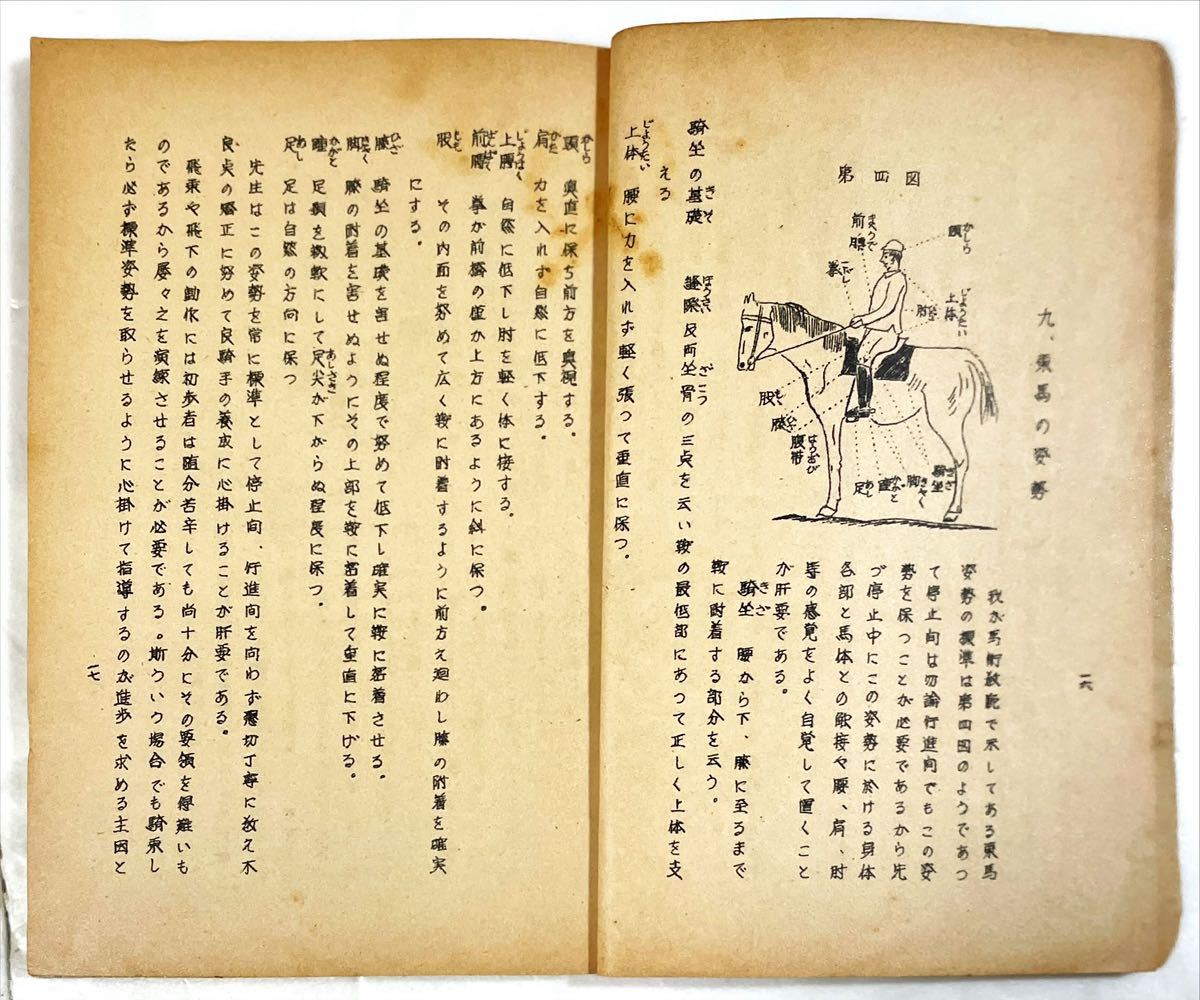 九、乗馬の姿勢
第四図
頭 かしら
上体 じようたい
肘 ひじ
前膊 まえうで
拳 こぶし
股 もも
膝 ひざ
腹帯 はらおび
足 あし
踵 かかと
脚 きやく
騎坐 きざ
我が馬術教範で示してある乗馬
姿勢の標準は第四図のようであつ
て停止間は勿論行進間でもこの姿
勢を保つことが必要であるから先
づ停止中にこの姿勢に於ける身体
各部と馬体との触接や腰、肩、肘
等の感覚をよく自覚して置くこと
が肝要である。
騎坐 きざ 腰から下、膝に至るまで
鞍に附着する部分を云う。
騎坐の基礎 きそ 及両坐骨 ざこつ の三点を云い鞍の最低部にあつて正しく上体を支
える
上体 じようたい 腰に力を入れず軽く張つて垂直に保つ。
一六
頭 かしら 真直に保ち前方を直視する。
肩 かた 力を入れず自然に低下する。
上膊 じようはく 自然に低下し肘を軽く体に接する。
前膊 ぜんぱく 拳が前橋の僅か上方にあるように斜に保つ。
股 もも その内面を努めて広く鞍に附着するように前方え廻わし膝の附着を確実
にする。
膝 ひざ 騎坐の基礎を害せぬ程度で努めて低下し確実に鞍に密着させる。
脚 きやく 膝の附着を害せぬようにその上部を鞍に密着して垂直に下げる。
踵 かがと 足頸を柔軟にして足尖 あしさき が下がらぬ程度に保つ。
足 あし 足は自然の方向に保つ
先生はこの姿勢を常に標準として停止間、行進間を問わず懇切丁寧に教え不
良点の矯正に努めて良騎手の養成に心掛けることが肝要である。
飛乗や飛下の動作には初歩者は随分苦辛しても尚十分にその要領を得難いも
のであるから屡々之を演練させることが必要である。斯ういう場合でも騎乗し
たら必ず標準姿勢を取らせるように心掛けて指導するのが進歩を求める主因と
一七